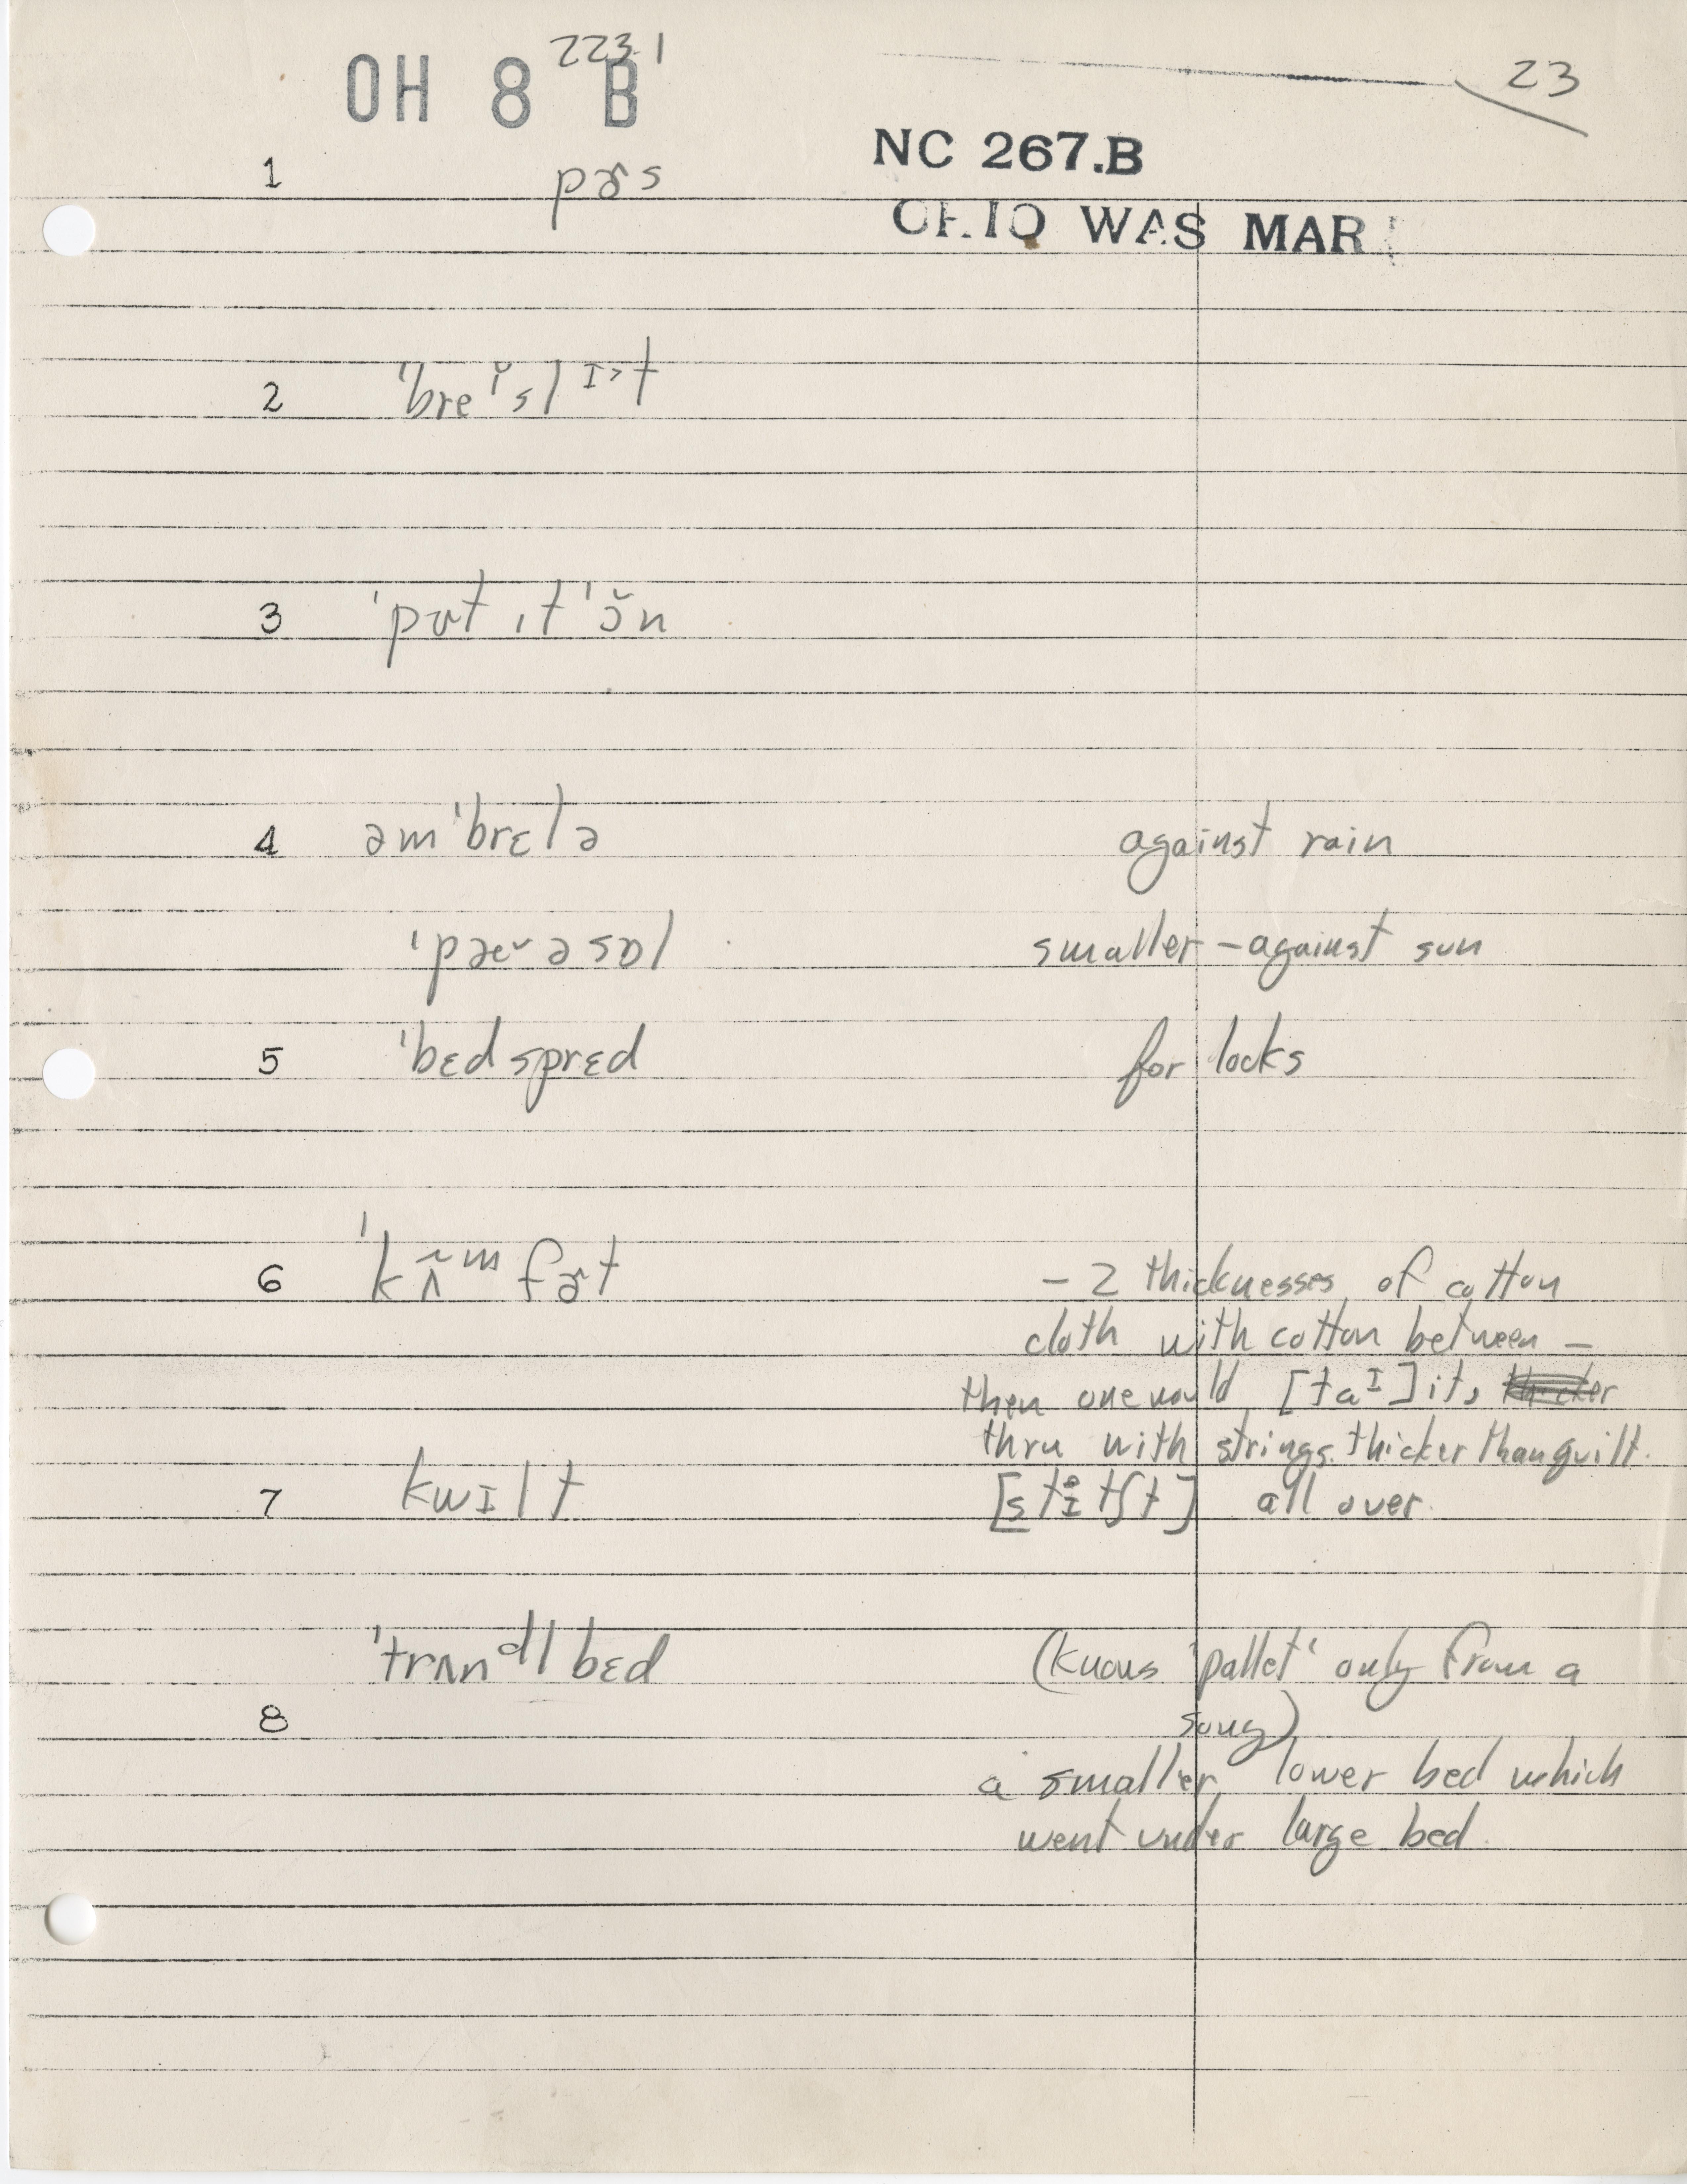 2231
OH 8 B
23
NC 267.B
OHIO WAS MAR
1 pɚs
2 ˈbreᶦ̯slɪ˃t
3 ˈpʊt ɪt ˈɔ̆n
4 əmˈbrɛlə against rain
ˈpæ˘əsɒl smaller – against sun
5 ˈbɛdsprɛd for looks
6 ˈkʌ̃ᵐfɚt – 2 thicknesses of cotton
cloth with cotton between –
then one would [taᶦ] it,
thru with strings. thicker than quilt.
7 kwɪlt [stɪ̊tʃt] all over.
ˈtrʌnᵈl bɛd (knows 'pallet' only from a
8 song)
a smaller, lower bed which
went under large bed.